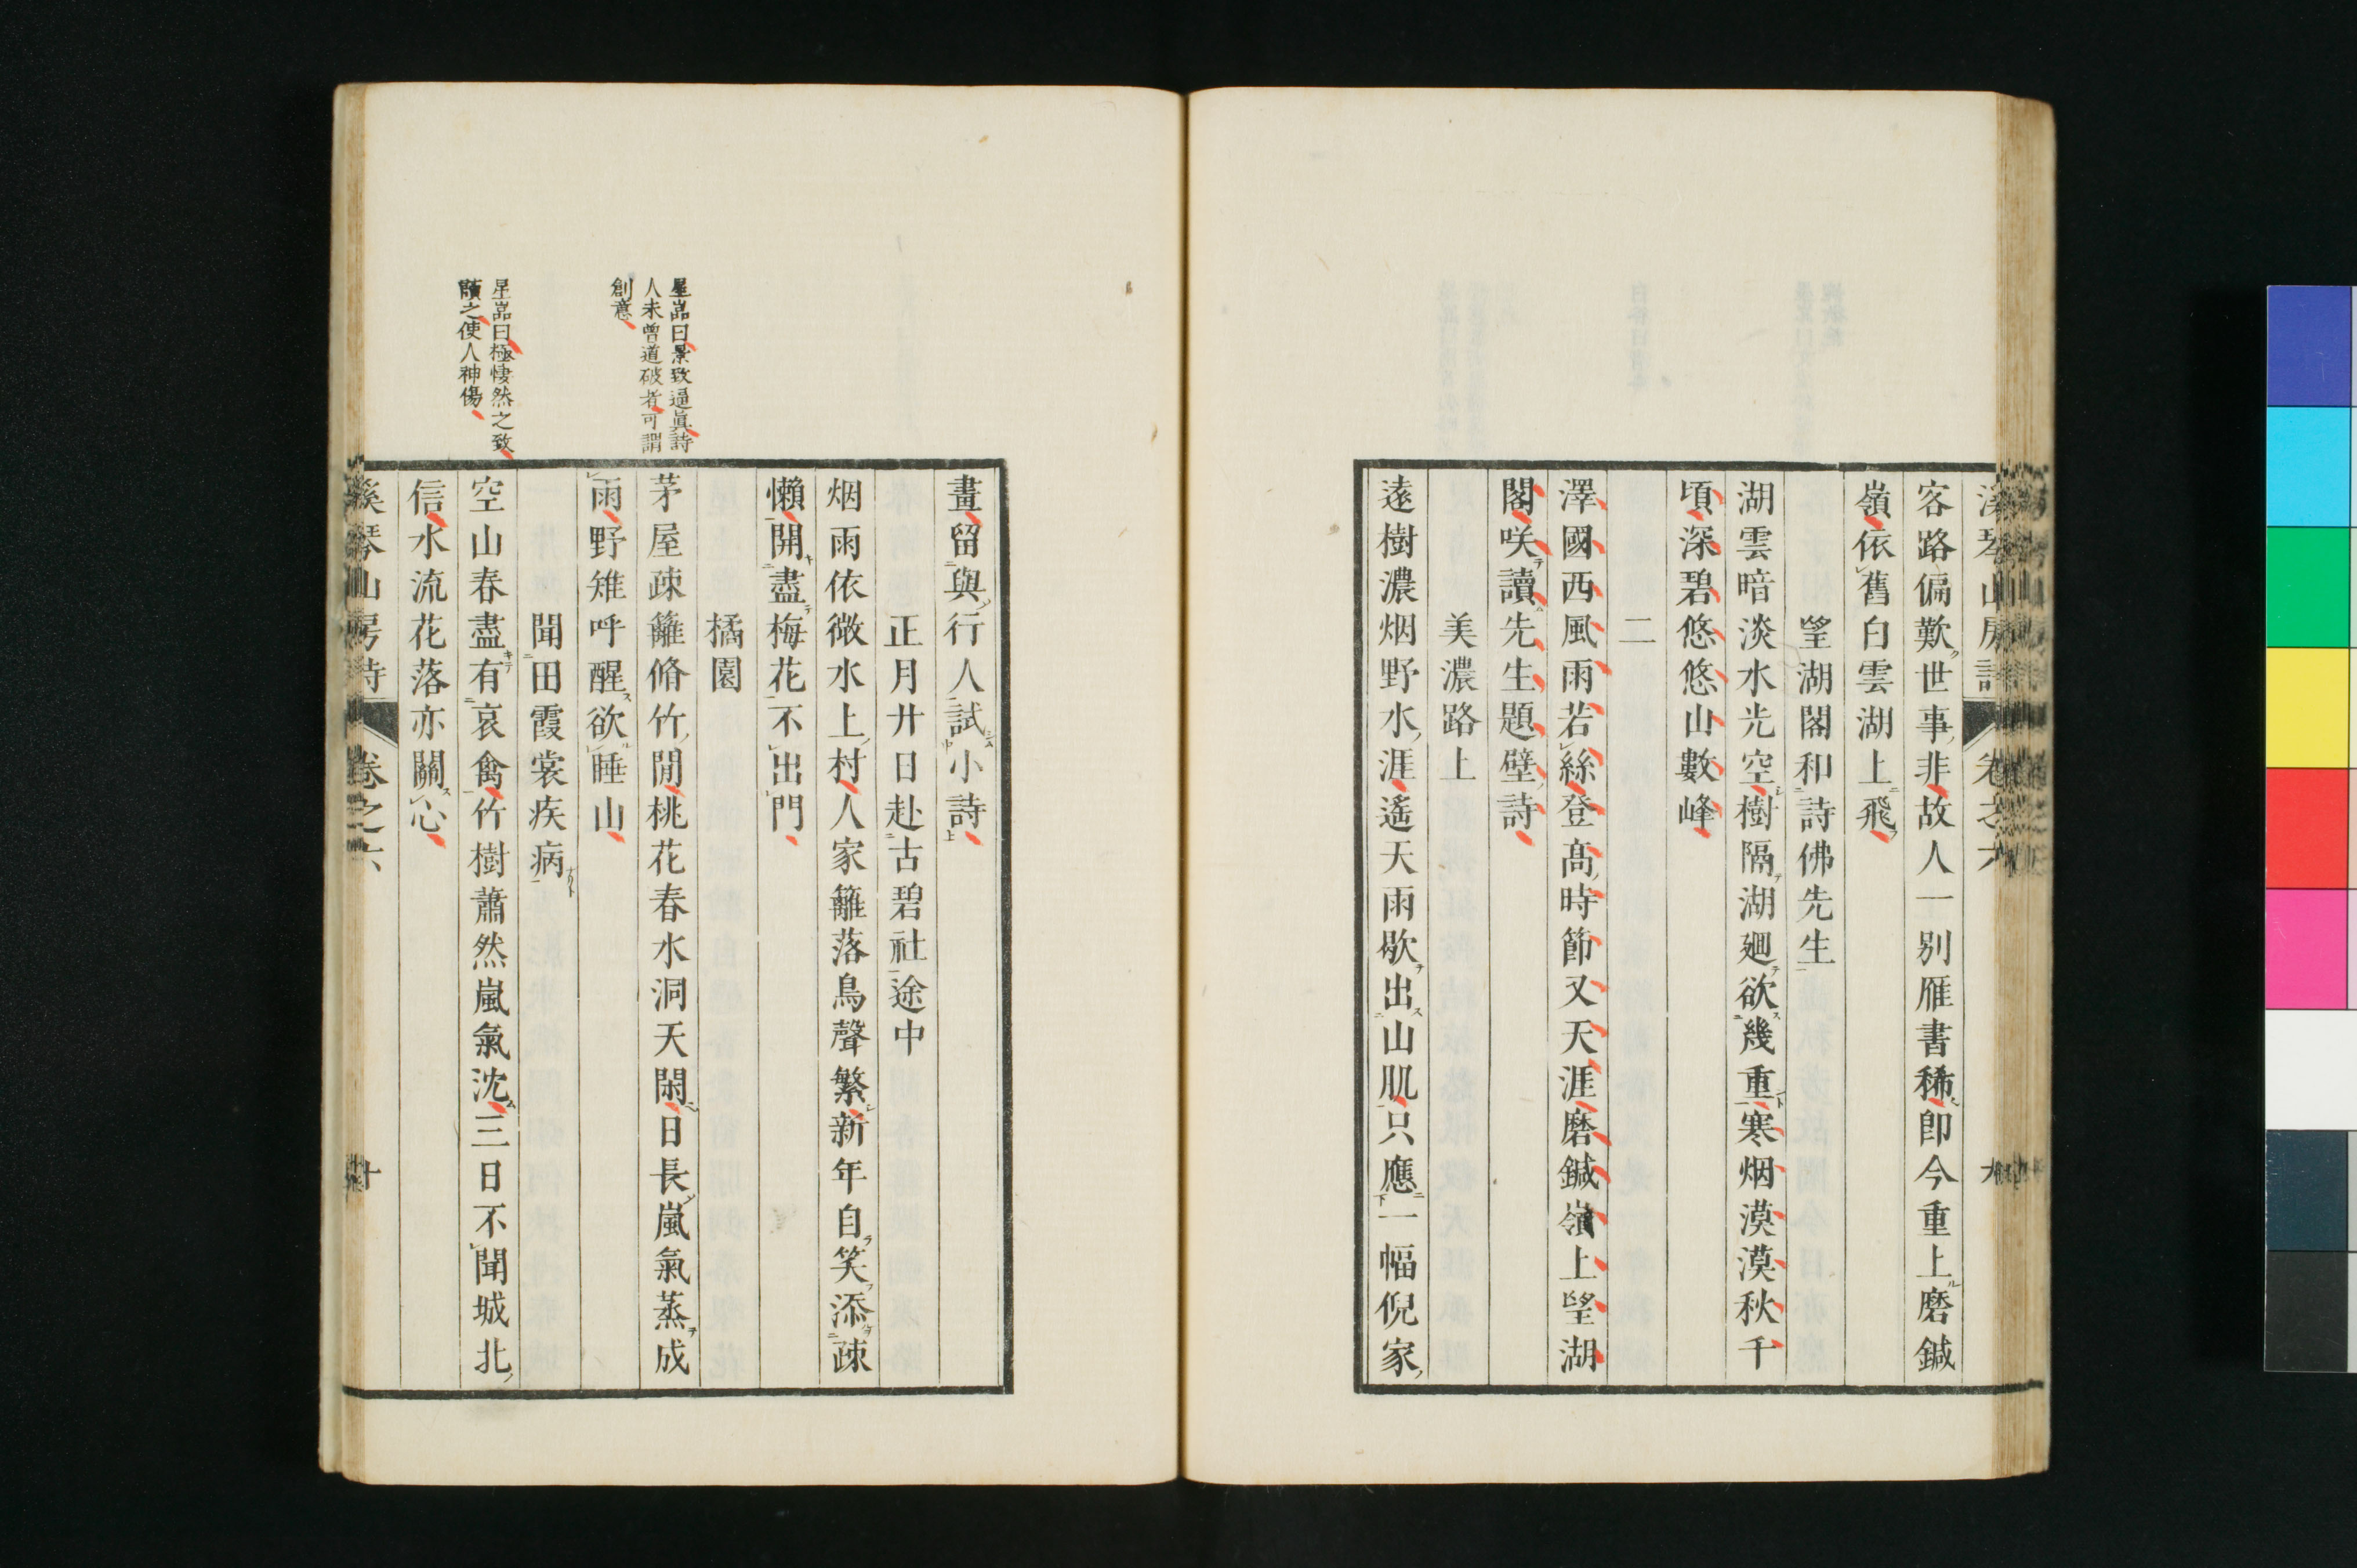 客路偏歎世事非故人一別雁書稀卽今重上磨鍼
嶺依舊白雲湖上飛
望湖閣和詩佛先生
湖雲暗淡水光空樹隔湖廻欲幾重寒烟漠漠秋千
頃深碧悠悠山數峰
二
澤國西風雨若絲登高時節又天涯磨鍼嶺上望湖
閣咲讀先生題壁詩
美濃路上
遠樹濃烟野水涯遙天雨歇出山肌只應一幅倪家
畫留與行人試小詩
正月廿日赴古碧社途中
烟雨依微水上村人家籬落鳥聲繁新年自笑添疎
懶開盡梅花不出門
橘園
茅屋疎籬脩竹閒桃花春水洞天閑日長嵐氣蒸成
雨野雉呼醒欲睡山
聞田霞裳疾病
空山春盡有哀禽竹樹蕭然嵐氣沈三日不聞城北
信水流花落亦關心
星喦曰景致逼眞詩
人未曾道破者可謂
創意
星喦曰極悽然之致
讀之使人神傷
琴山房詩 卷之六 十